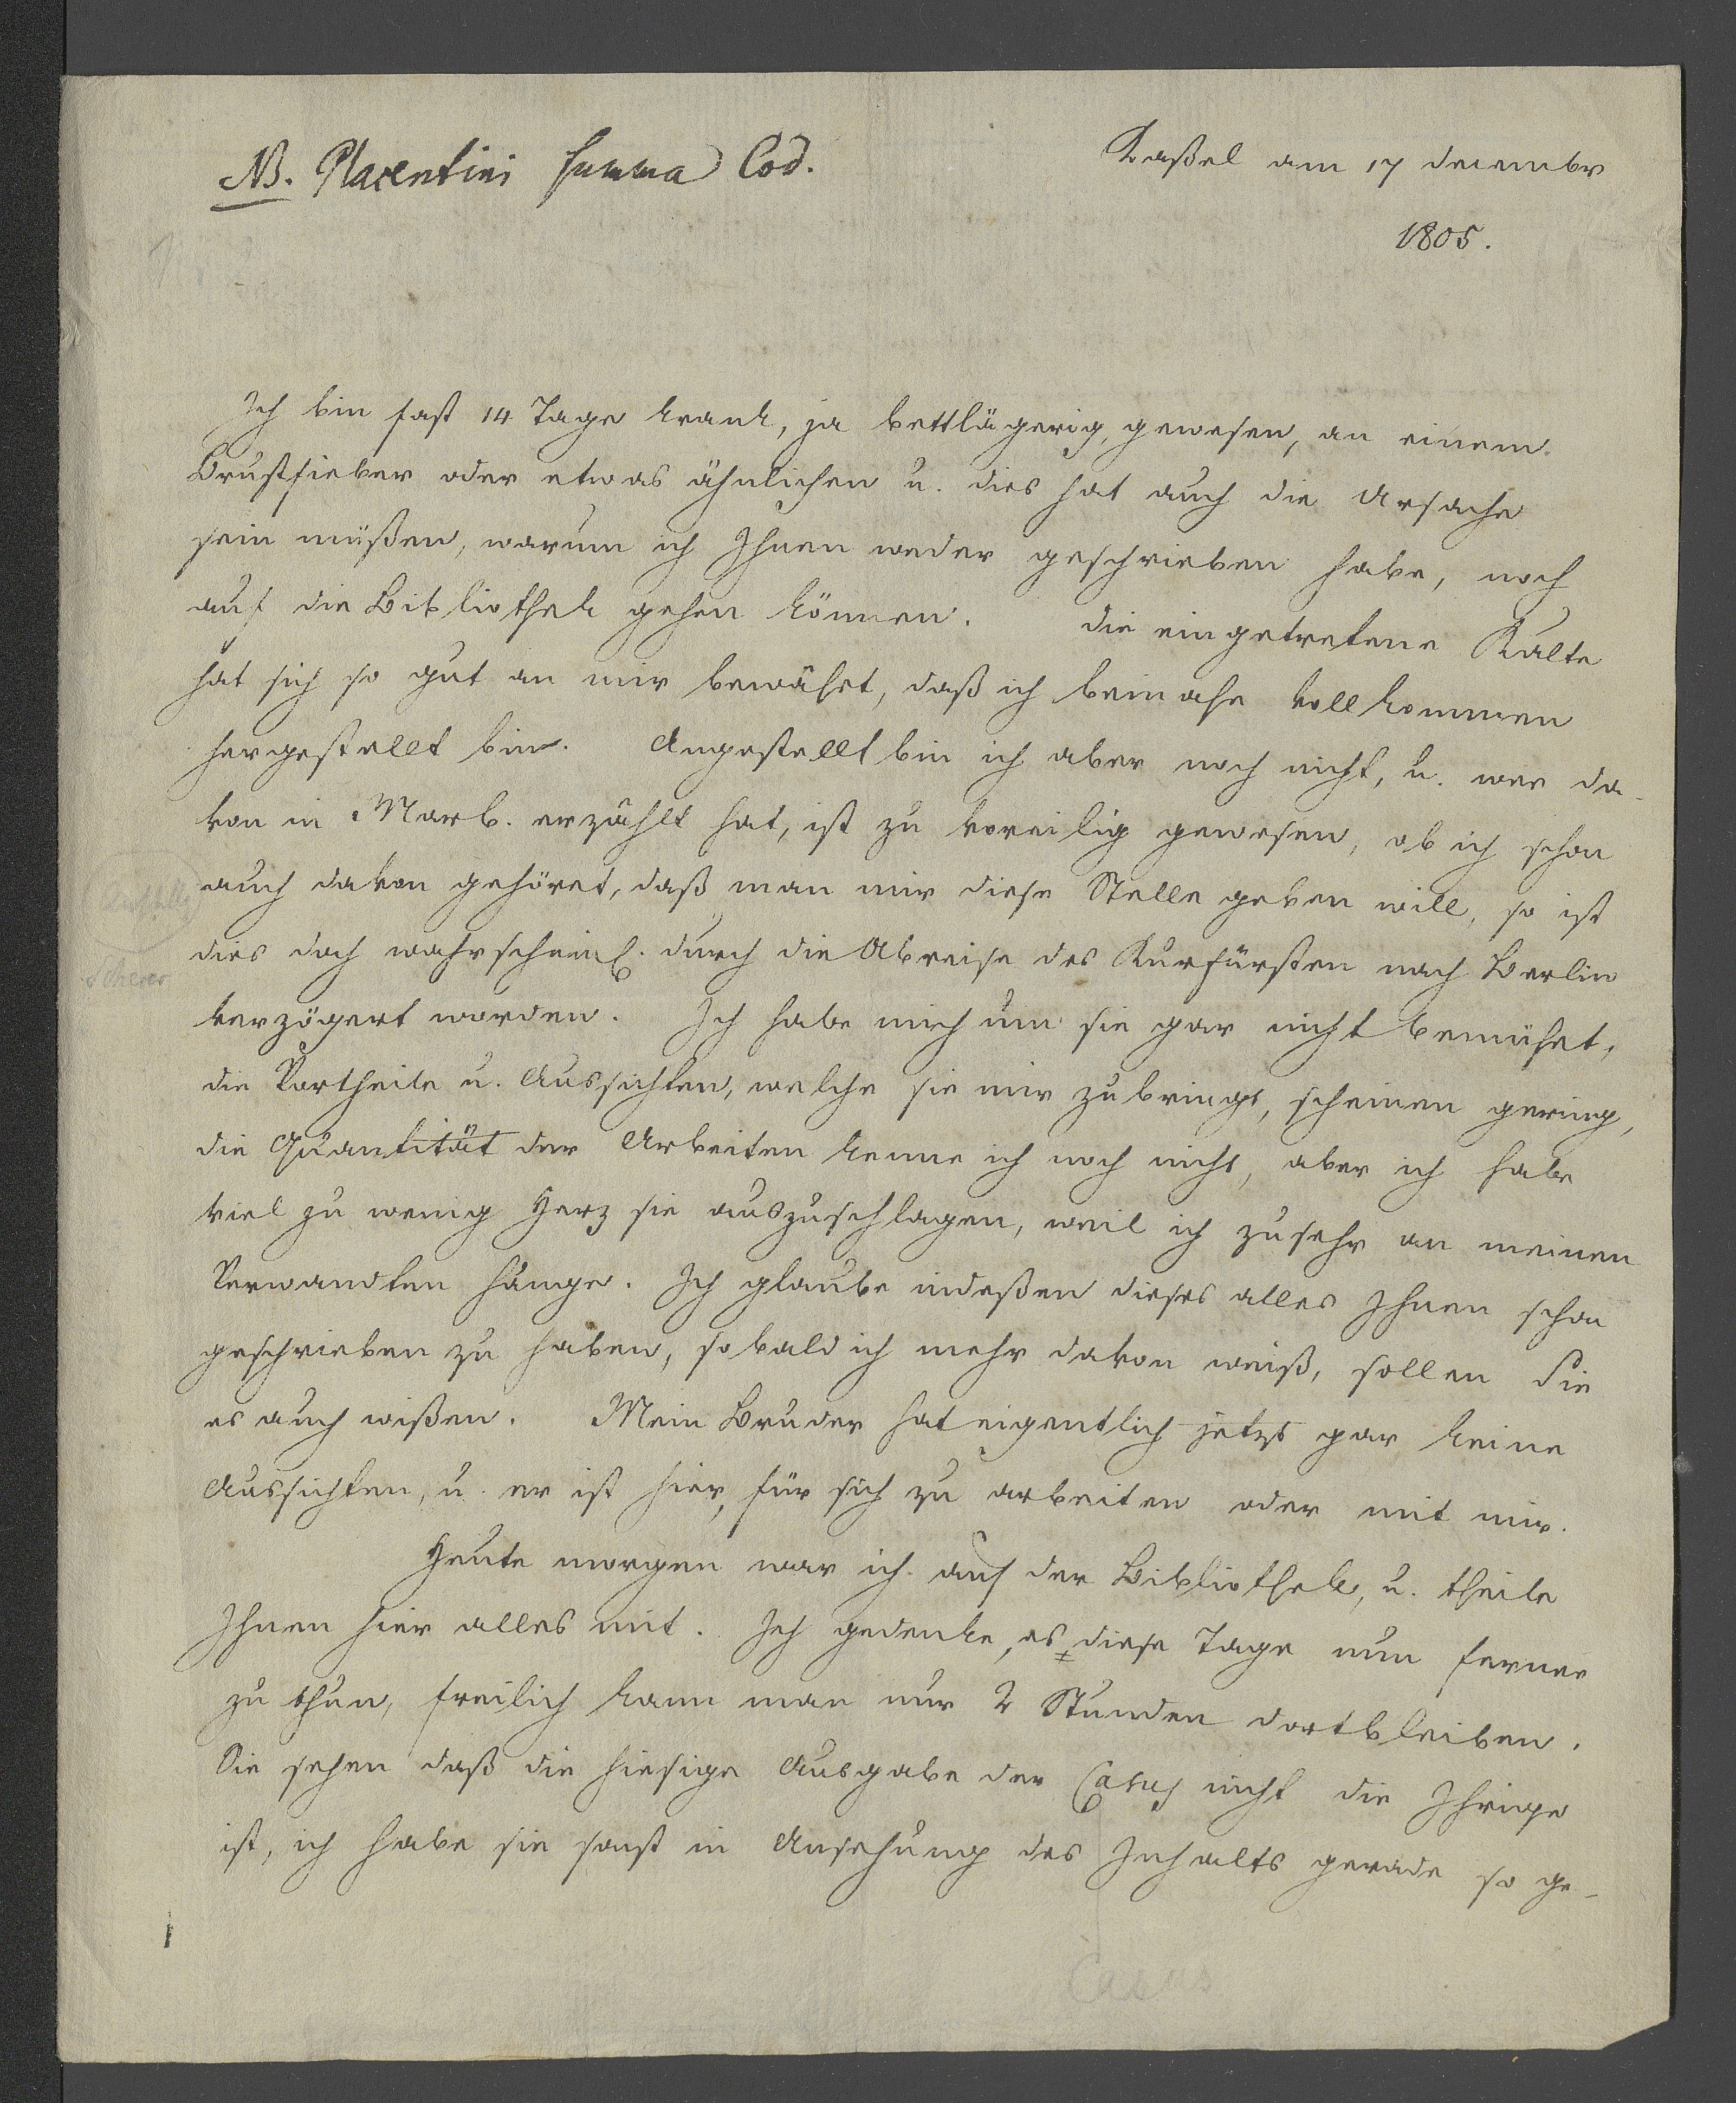 NB. Placentini Summa Cod.
Kaßel am 17 December
1805.
Ich bin fast 14 Tage krank, ja bettlägerig, gewesen, an einem
Brustfieber oder etwas ähnlichen u. dies hat auch die Ursache
sein müßen, warum ich Ihnen weder geschrieben habe, noch
auf die Bibliothek gehen können. Die eingetretene Kälte
hat sich so gut an mir bewährt, daß ich beinahe vollkommen
hergestellt bin. Angestellt bin ich aber noch nicht, u. wer da-
von in Marb. erzählt hat, ist zu voreilig gewesen, ob ich schon
auch davon gehöret, daß man mir diese Stelle geben will, so ist
dies doch wahrscheinl. durch die Abreise des Kurfürsten nach Berlin
verzögert worden. Ich habe mich um sie gar nicht bemühet,
die Vortheile u. Aussichten, welche sie mir zubringt, scheinen gering,
die Quantität der Arbeiten kenne ich noch nicht, aber ich habe
viel zu wenig Herz sie auszuschlagen, weil ich zusehr an meinen
Verwandten hänge. Ich glaube indeßen dieses alles Ihnen schon
geschrieben zu haben, sobald ich mehr davon weiß, sollen Sie
es auch wißen. Mein Bruder hat eigentlich jetzt gar keine
Aussichten, u. er ist hier, für sich zu arbeiten oder mit mir.
Heute morgen war ich auf der Bibliothek, u. theile
Ihnen hier alles mit. Ich gedenke, es diese Tage nun ferner
zu thun, freilich kann man nur 2 Stunden dortbleiben.
Sie sehen daß die hiesige Ausgabe der Casus nicht die Ihrige
ist, ich habe sie sonst in Ansehung des Inhalts gerade so ge-
Casus